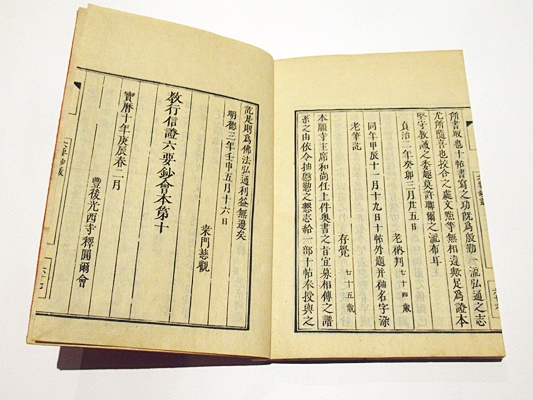 所書取也十帖書寫之功旣爲慇懃一流弘通之志
尤所隨喜也校合之處文點等無相違足爲證本
堅守敎誡之委趣莫許聊爾之流布
貞治二年癸卯三月廿五日
老衲判 七十四歲
同年甲辰十二月十九日十帖外題幷袖名字染
老筆訖
存覺 七十五歲
本願寺主席和尚任上件奧書之旨宜募相傳之譜
系之由依令抽慇懃之懇志給一部十帖奉授與之
訖是則爲佛法弘通利益無邊矣
明德三年壬申五月十六日
桑門慈觀
敎行信證六要鈔會本第十
寶曆十年庚辰春二月
豐後光西寺釋圓爾會